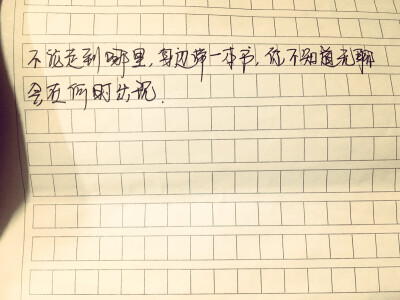 不论走到哪里，身边带一本书，你不知道无聊
会在何时出现.